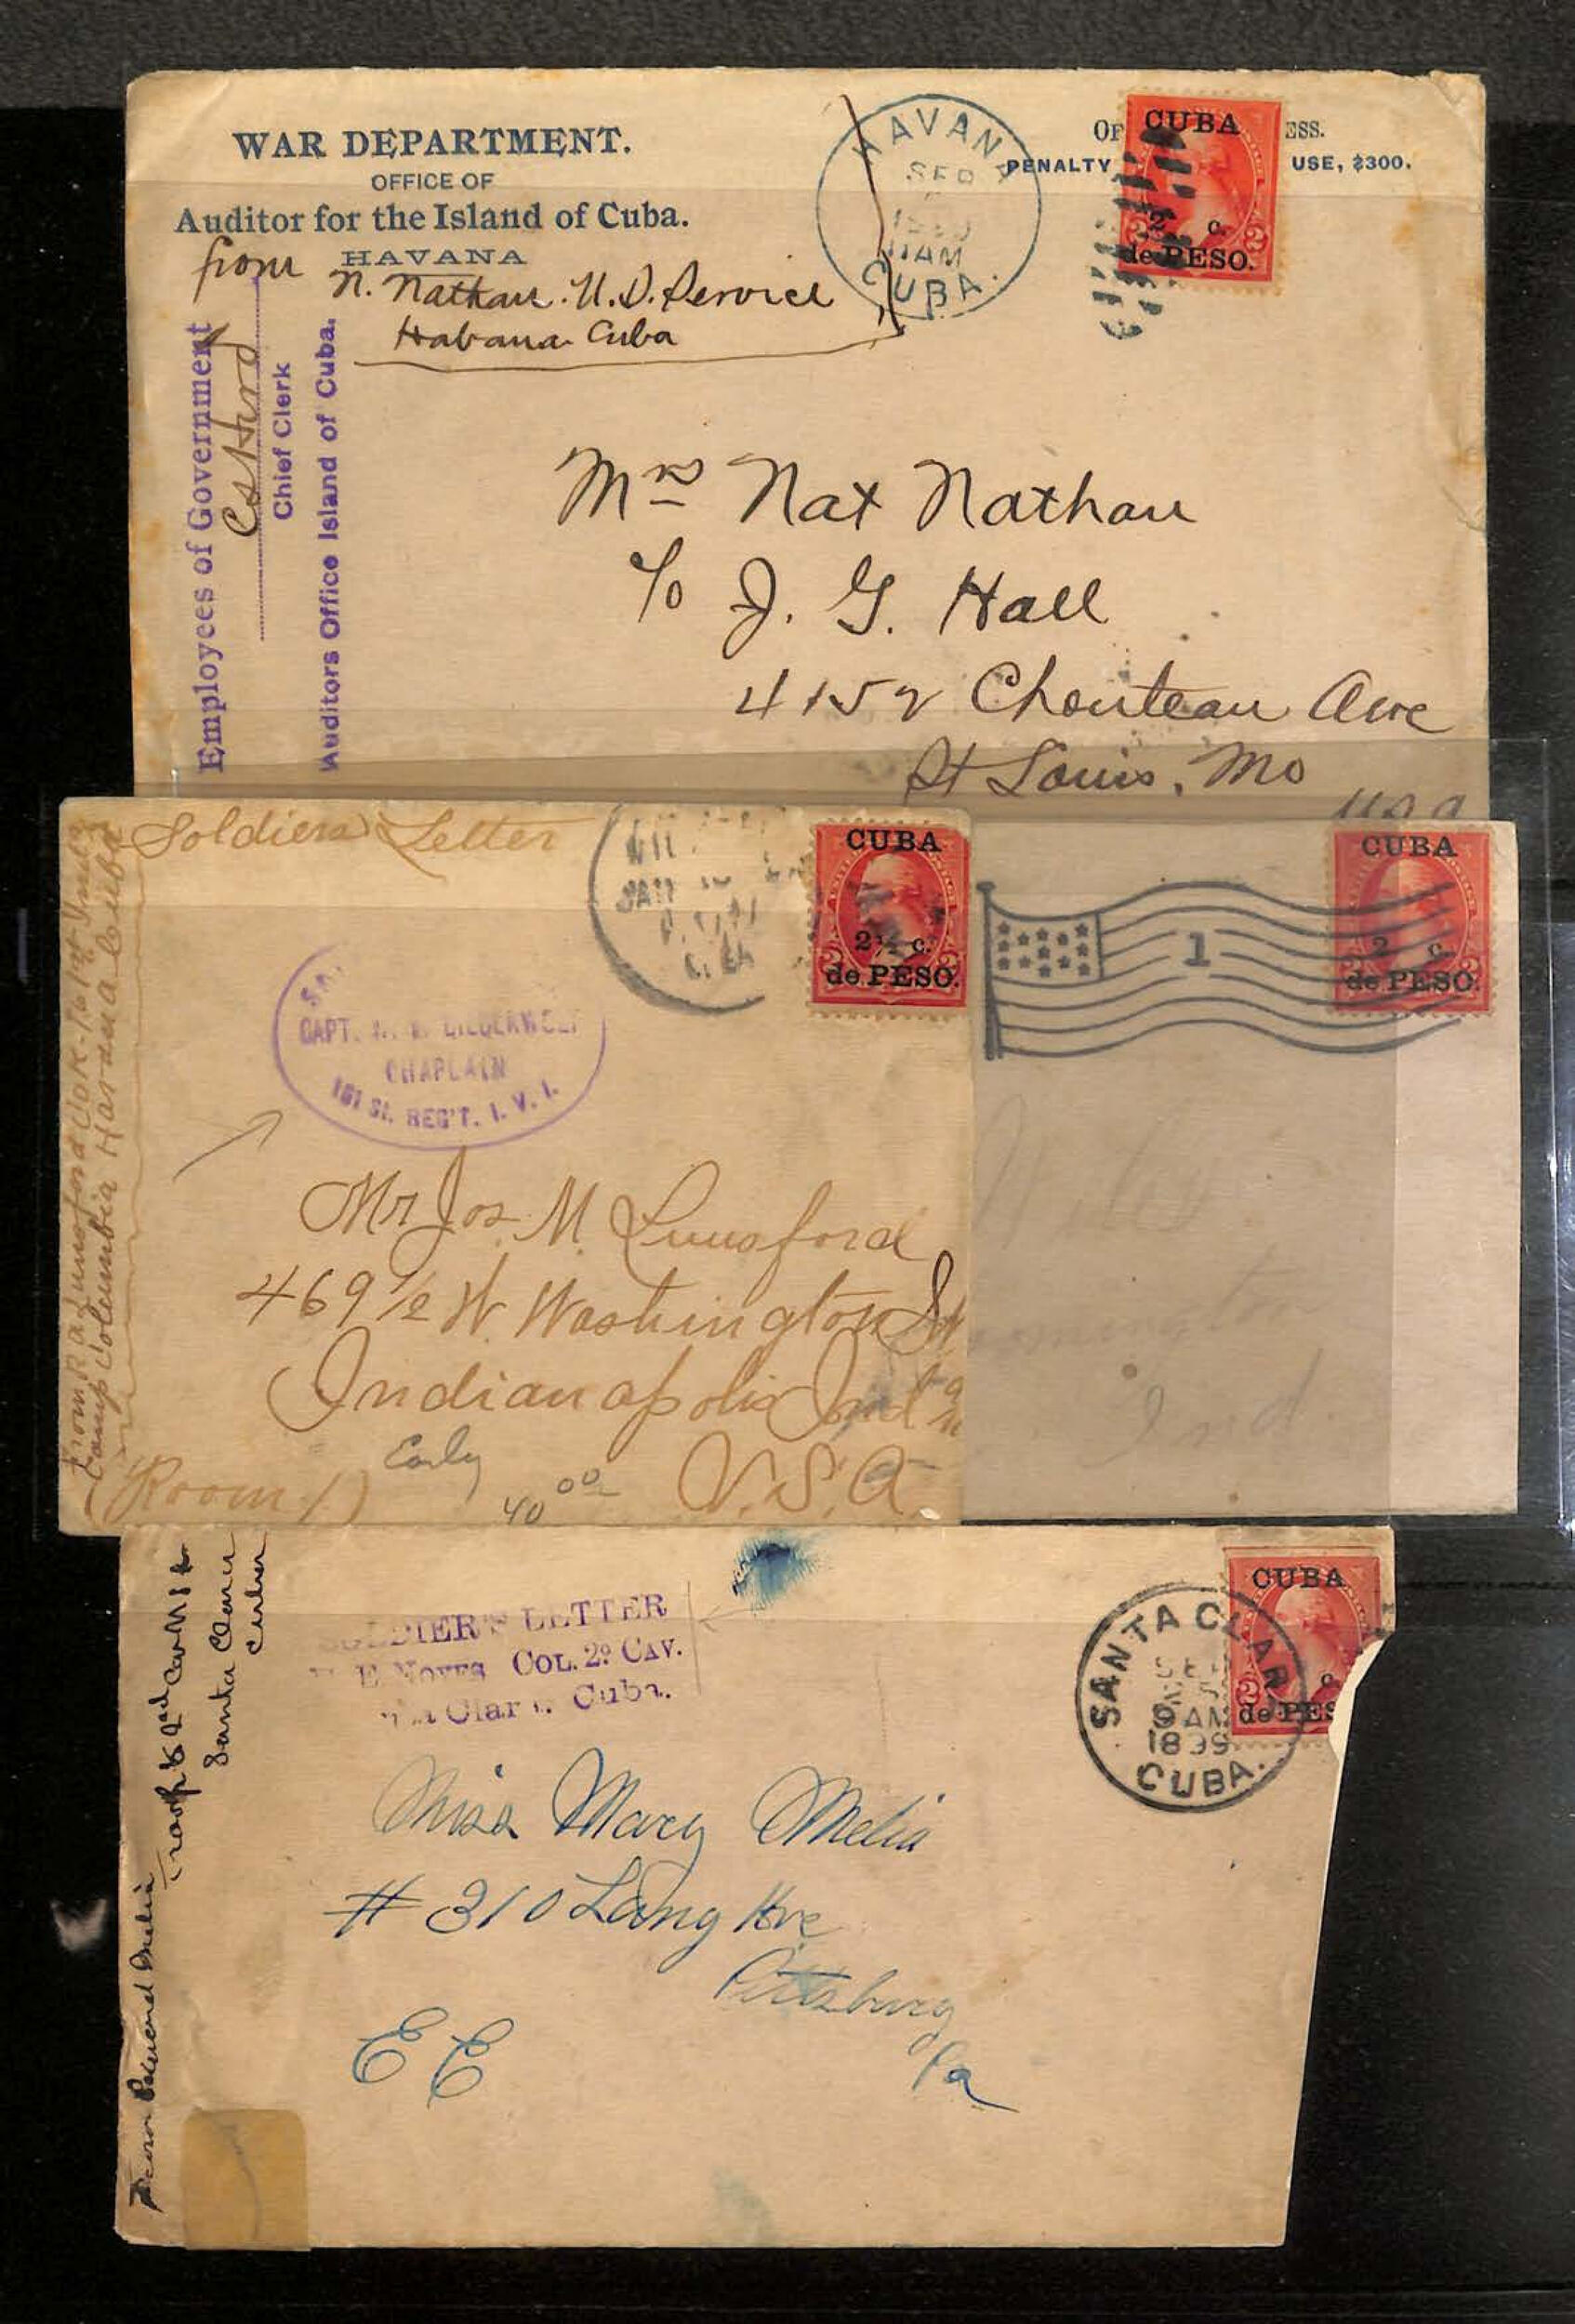 WAR DEPARTMENT.
OFFICE OF
Auditor for the Island of Cuba.
HAVANA
from
N. Nathan. U.S. Service
Habana Cuba
HAVANA
SEP
11AM
CUBA.
OF ESS.
PENALTY USE, $300.
CUBA
2 c.
de PESO.
Employees of Government
Chief Clerk
Auditors Office Island of Cuba.
Mrs Nat Nathan
c/o J. G. Hall
4152 Chouteau Ave
St Louis, Mo
USA
Soldiers Letter
CUBA
2½ c.
de PESO.
CAPT.
CHAPLAIN
161 St. REG'T. I. V. I.
Camp Columbia Havana Cuba
Mr Jos. M. Lunsford
469 1/2 W. Washington St
Indianapolis Ind
U.S.A.
(Room 1)
Early
40 00
1
CUBA
2 c.
de PESO.
Ind.
SOLDIER'S LETTER
COL. 2º CAV.
Cuba.
SANTA CLARA
9 AM
1899
CUBA.
CUBA
c.
de PES
Santa Clara
Cuba
Miss Mary Melia
# 310 Lang Ave
Pittsburg
Pa
E E